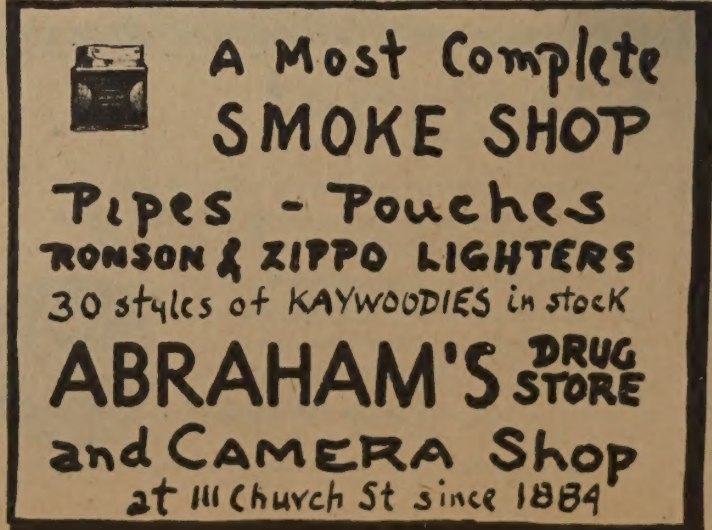 A Most Complete
SMOKE SHOP
Pipes - Pouches
RONSON & ZIPPO LIGHTERS
30 styles of KAYWOODIES in stock
ABRAHAM'S DRUG STORE
and CAMERA Shop
at 111 Church St since 1884